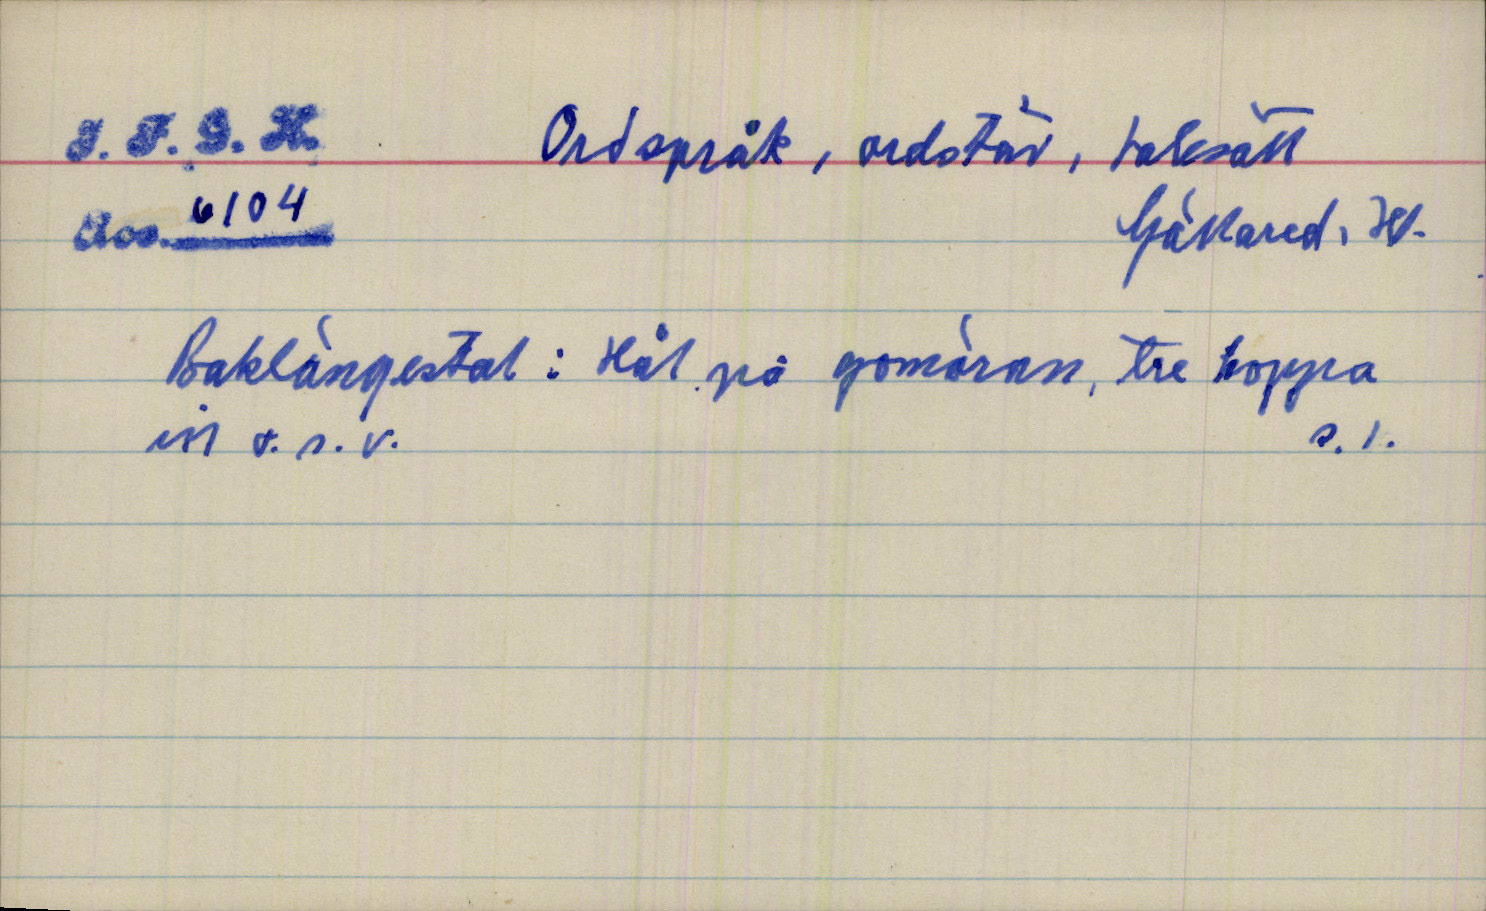 I. F. G. H.
Acc. 6104
Ordspråk, ordstäv, talesätt
Gällared, Hl.
Baklängestal: Hål på gomåran, tre hoppa
in o. s. v.
s. 1.